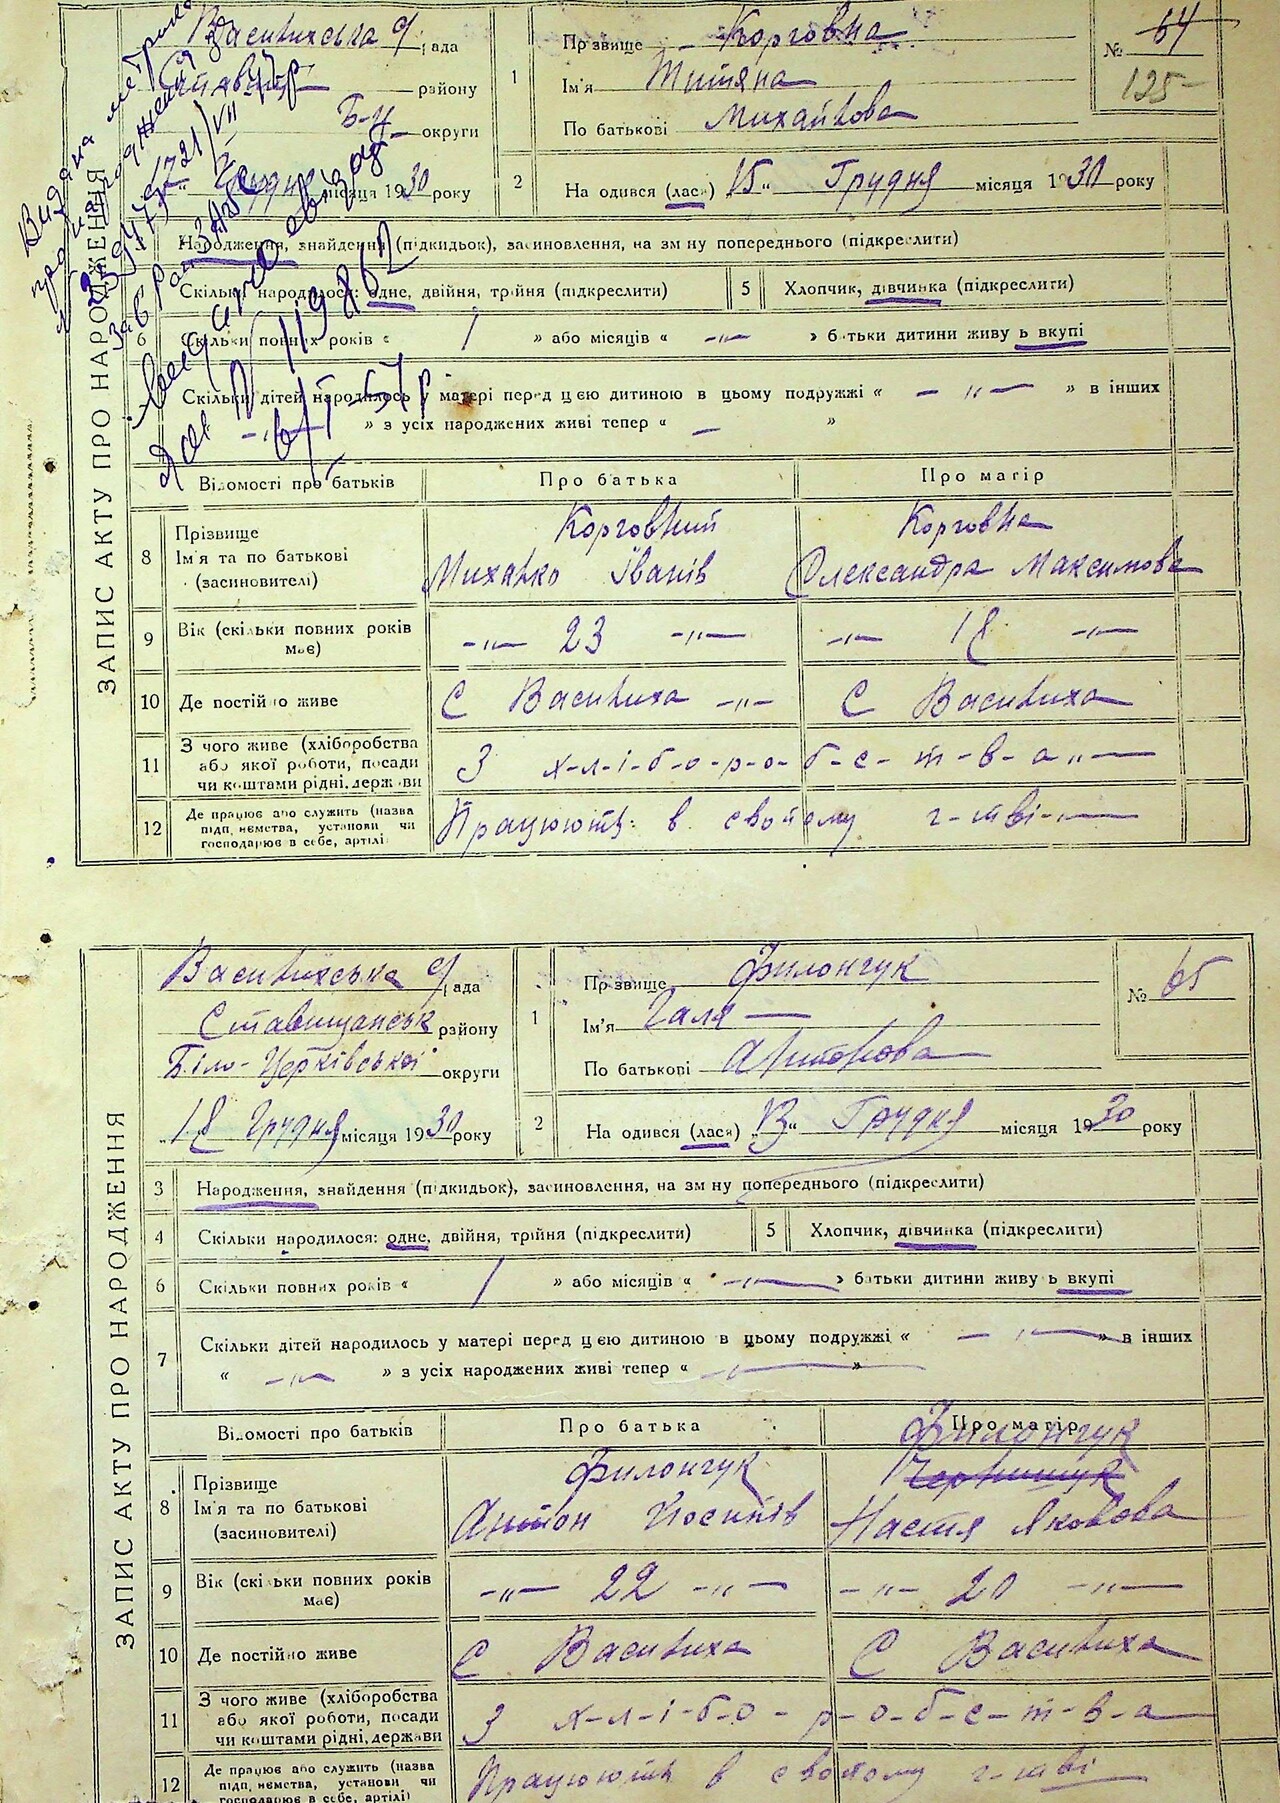 ЗАПИС АКТУ ПРО НАРОДЖЕННЯ
Василихська с/рада
району
Б-Ц округи
Грудня місяця 1930 року
1 Прізвище Корговна
Ім'я Титяна
По батькові Михайлова
№ 64
125-
2 На одився (лася) "15" Грудня місяця 1930 року
Видана метрика
про народження
Народження, знайдення (підкидьок), засиновлення, на зм ну попереднього (підкреслити)
Скільки народилося: одне, двійня, трійня (підкреслити)
5 Хлопчик, дівчинка (підкреслити)
6 Скільки повних років « 1 » або місяців « -"- » батьки дитини живу ь вкупі
Скільки дітей народилось у матері перед цією дитиною в цьому подружжі « - " - » в інших
» з усіх народжених живі тепер « - »
Відомості про батьків
Про батька
Про матір
8 Прізвище
Ім'я та по батькові
(засиновителі)
Корговний
Михайло Іванів
Корговна
Олександра Максимова
9 Вік (скільки повних років має)
-"- 23 -"-
-"- 18 -"-
10 Де постійно живе
С Василиха -"-
С Василиха
11 З чого живе (хліборобства
або якої роботи, посади
чи коштами рідні, держави
З х-л-і-б-о-р-о-б-с-т-в-а "-
12 Де працює або служить (назва
підп, немства, установи чи
господарює в себе, артілі)
Працюють в свойому г-тві-
ЗАПИС АКТУ ПРО НАРОДЖЕННЯ
Василихська с/рада
Ставищанськ району
Біло-Церківської округи
"18 Грудня місяця 1930 року
1 Прізвище Филончук
Ім'я Галя
По батькові Антонова
№ 65
2 На одився (лася) "13" Грудня місяця 1930 року
3 Народження, знайдення (підкидьок), засиновлення, на зм ну попереднього (підкреслити)
4 Скільки народилося: одне, двійня, трійня (підкреслити)
5 Хлопчик, дівчинка (підкреслити)
6 Скільки повних років « 1 » або місяців « -"- » батьки дитини живу ь вкупі
7 Скільки дітей народилось у матері перед цією дитиною в цьому подружжі « - " - » в інших
« -"- » з усіх народжених живі тепер « - »
Відомості про батьків
Про батька
Про матір
8 Прізвище
Ім'я та по батькові
(засиновителі)
Филончук
Антон Йосипів
Филончук
Настя Яковова
9 Вік (скільки повних років має)
-"- 22 -"-
-"- 20 -"-
10 Де постійно живе
С Василиха
С Василиха
11 З чого живе (хліборобства
або якої роботи, посади
чи коштами рідні, держави
З х-л-і-б-о-р-о-б-с-т-в-а
12 Де працює або служить (назва
підп, немства, установи чи
господарює в себе, артілі)
Працюють в свойому г-тві